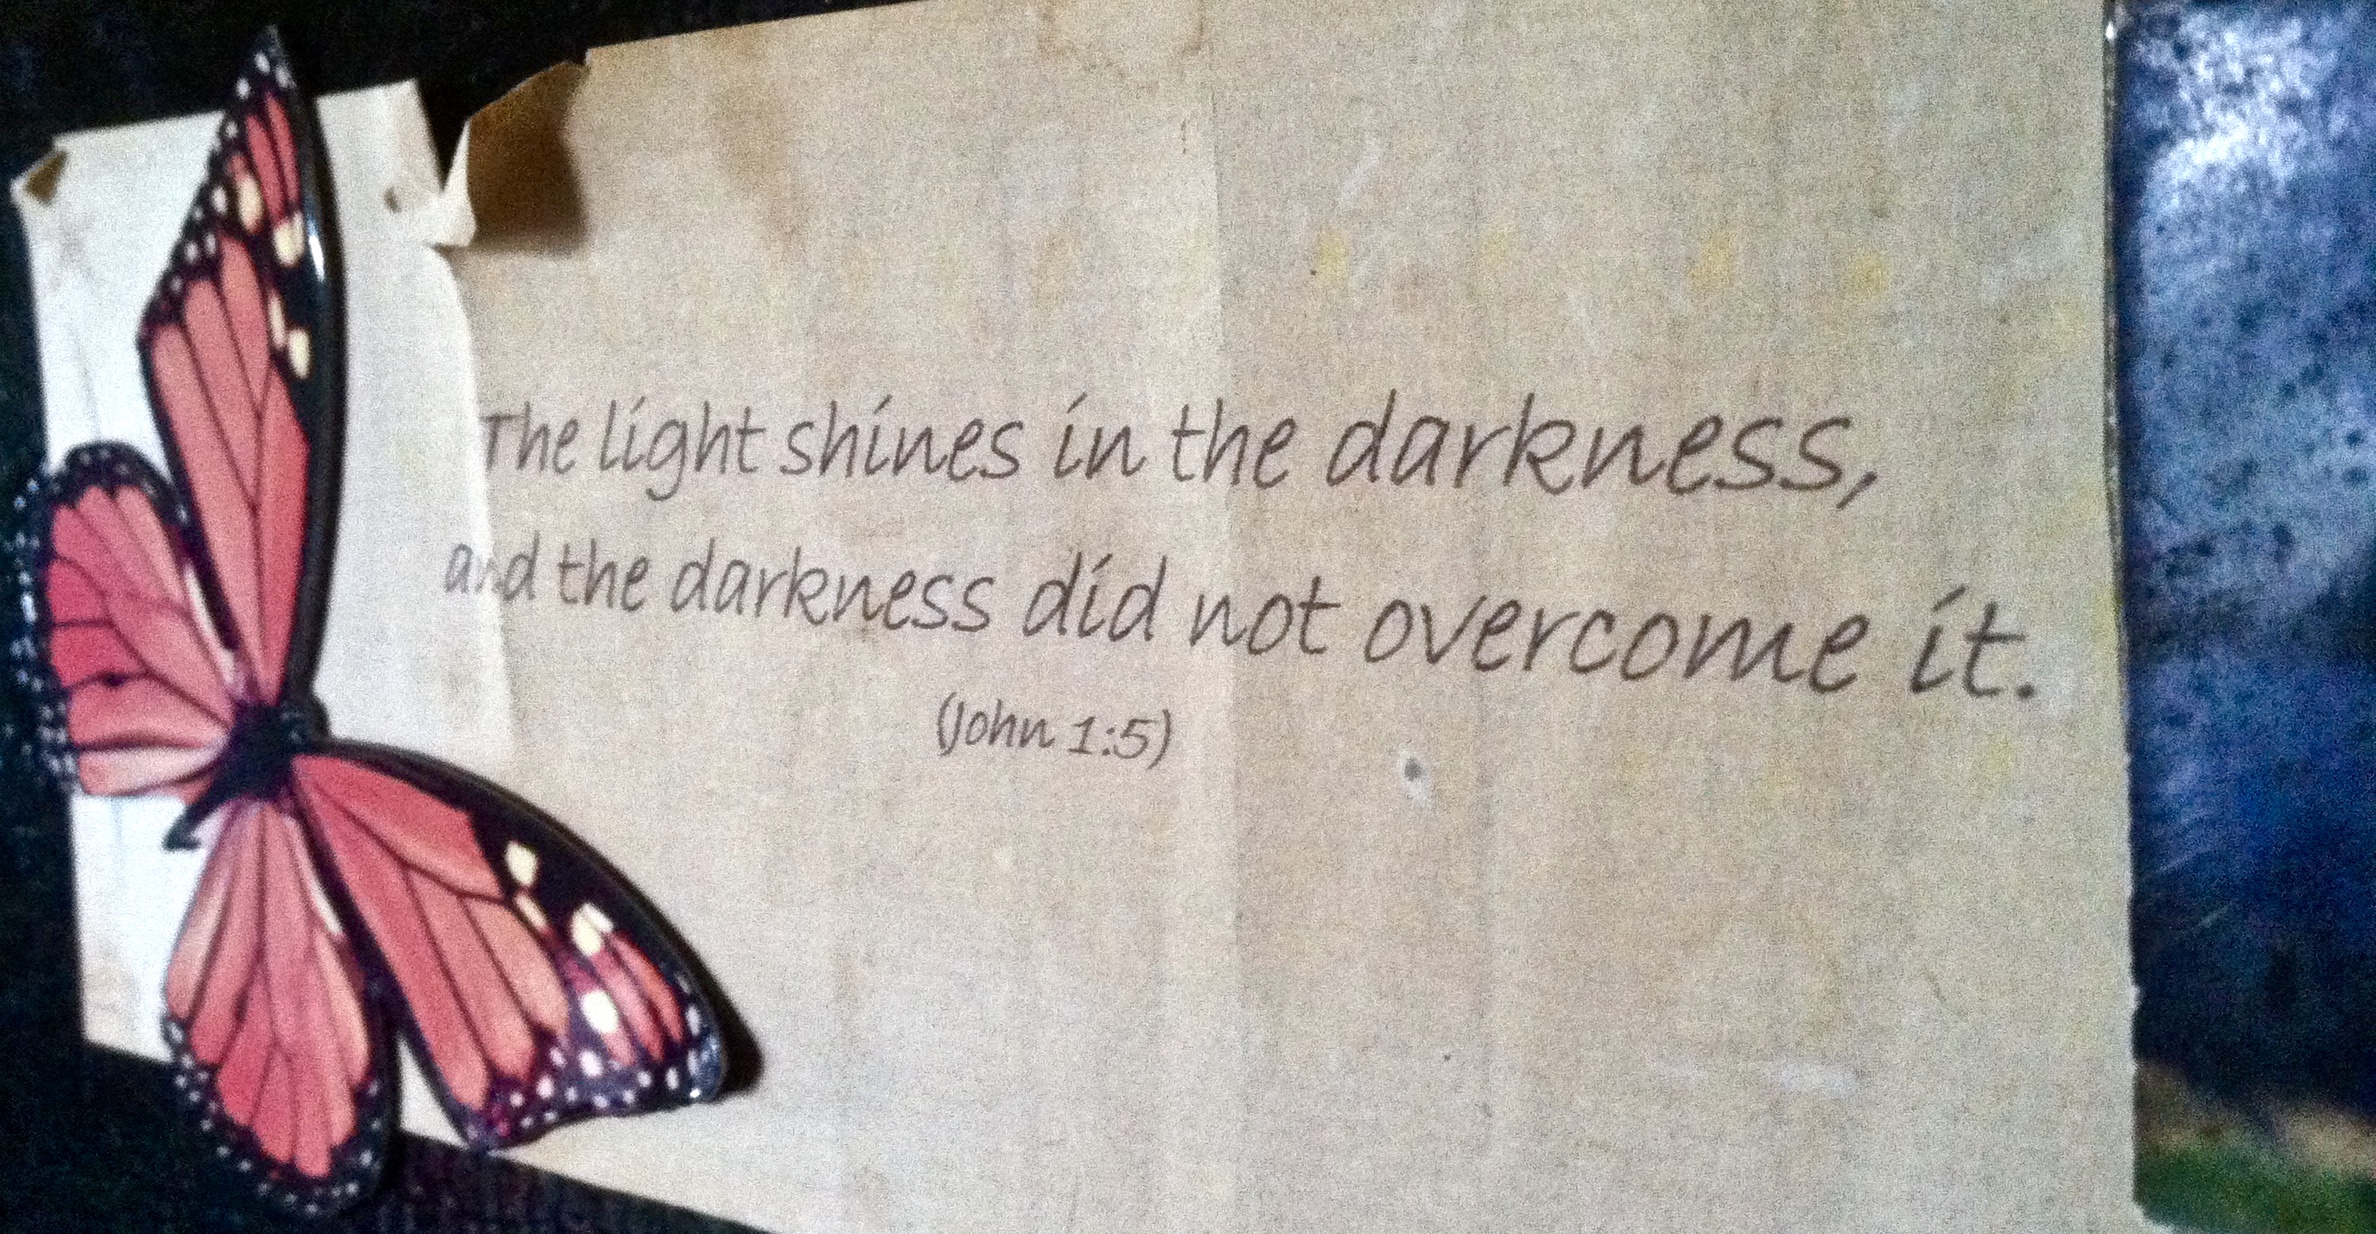 The light shines in the darkness,
and the darkness did not overcome it.
(John 1:5)